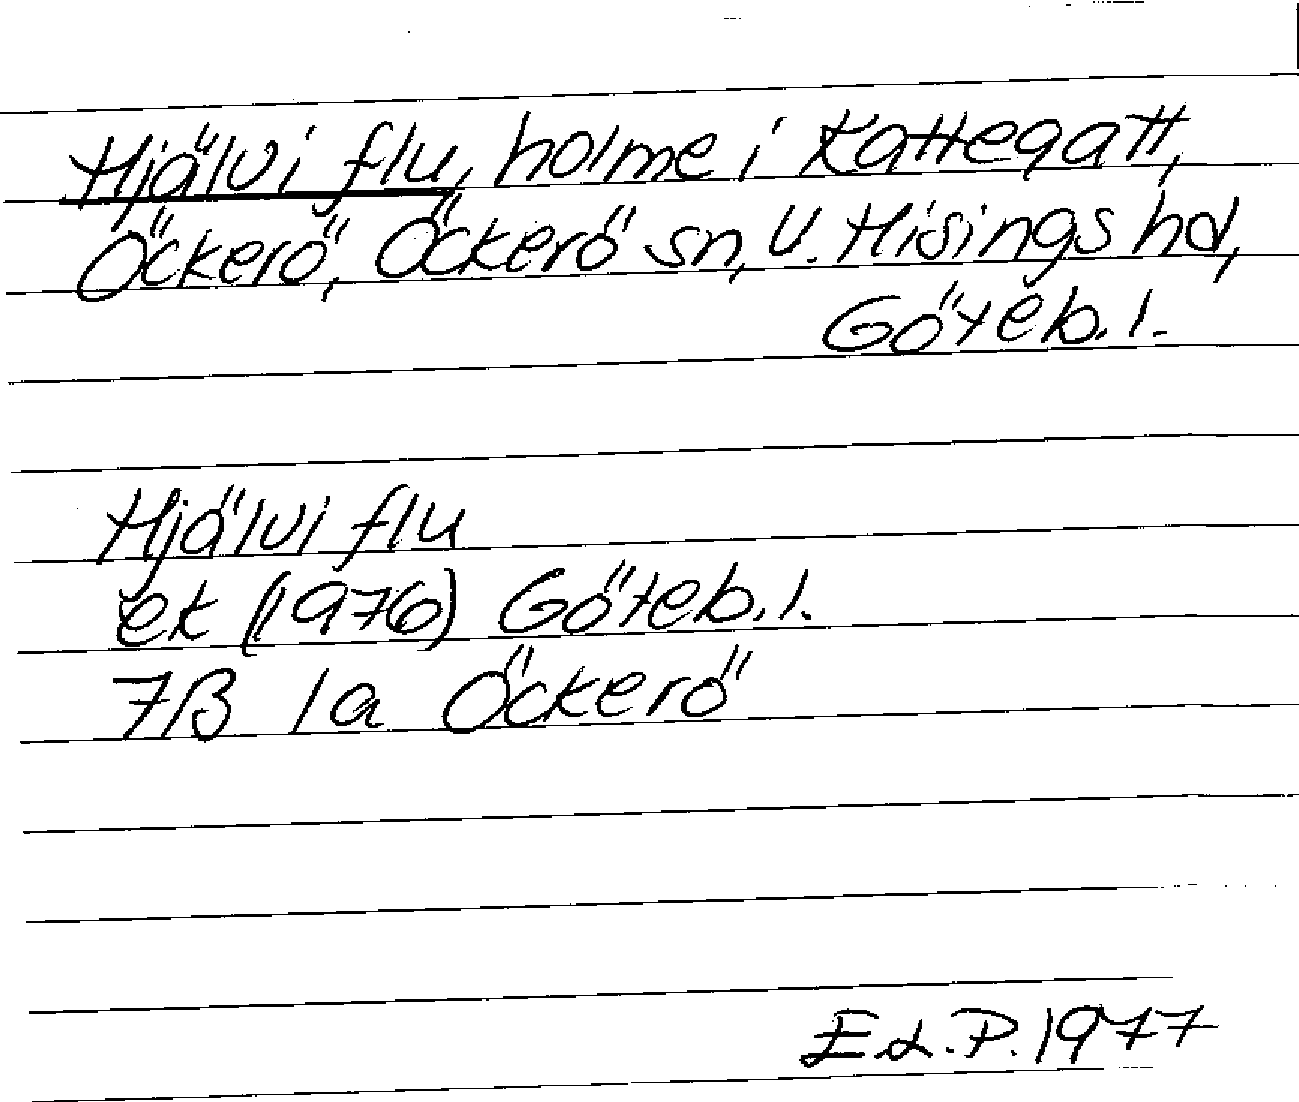 Hjälvi flu, holme i Kattegatt,
Öckerö, Öckerö sn, V. Hisings hd,
Göteb. l.
Hjälvi flu
ek (1976) Göteb. l.
7B 1a Öckerö
E.L.P. 1977